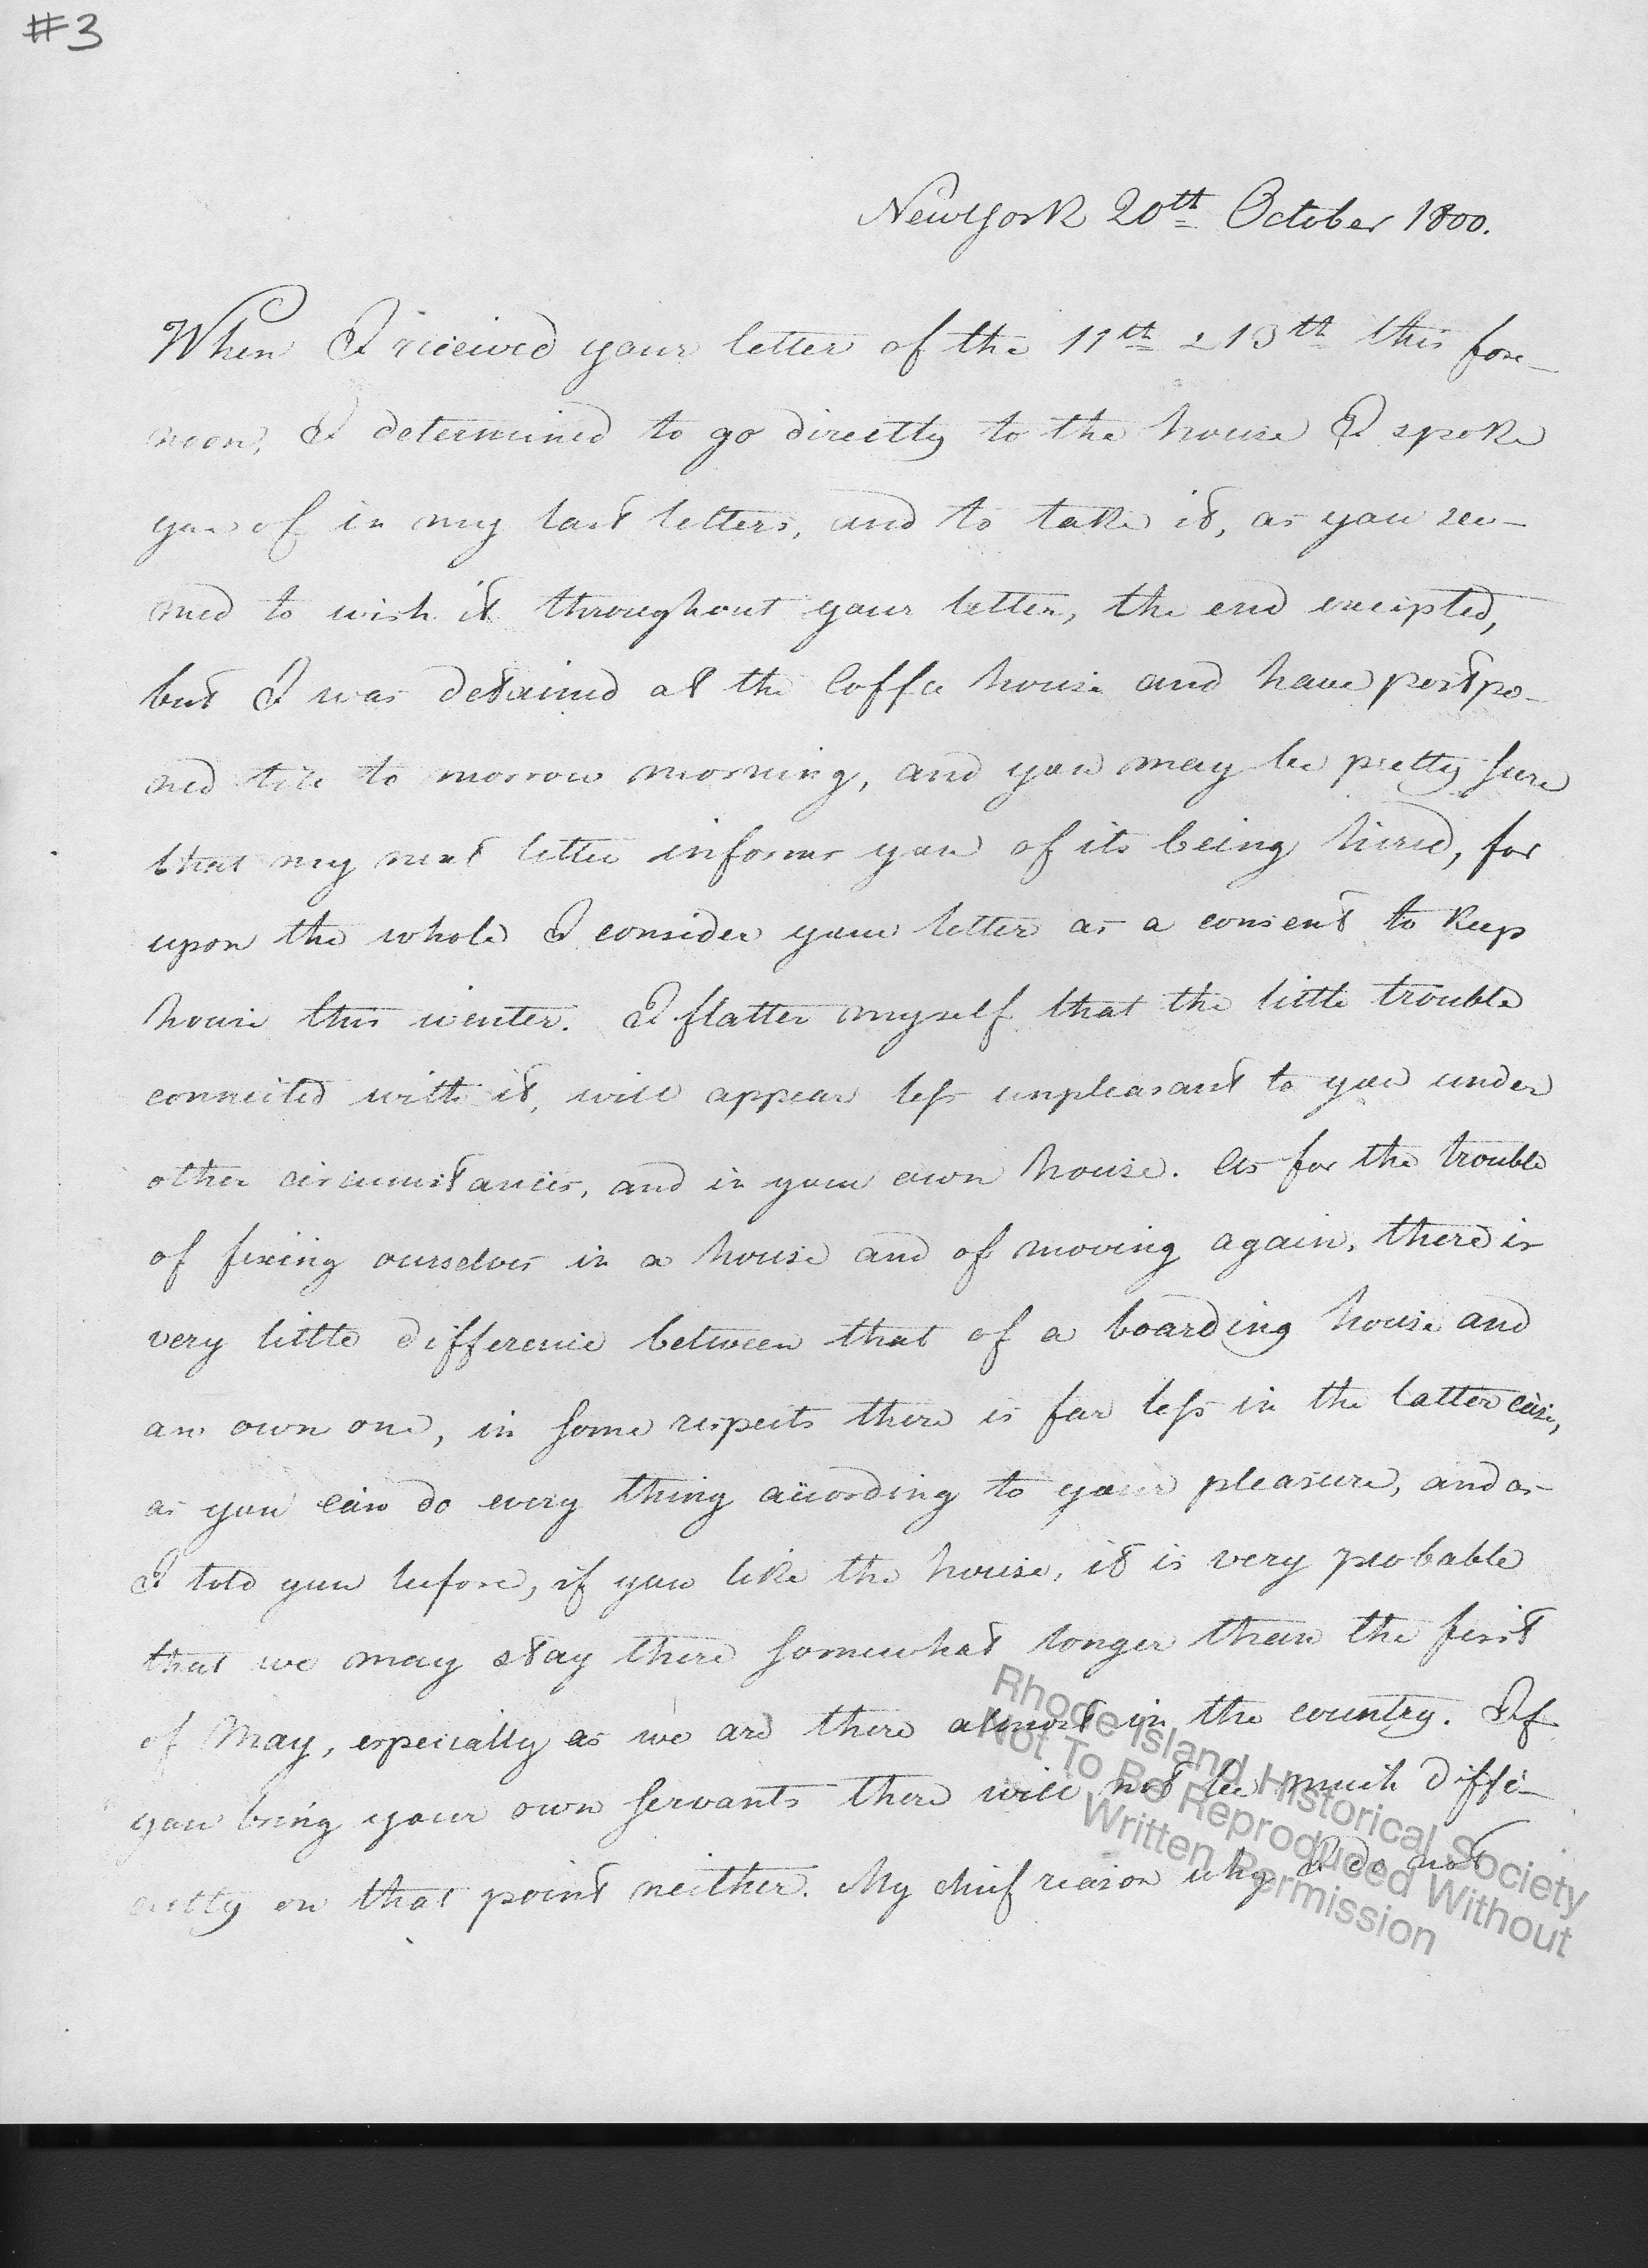 #3
NewYork 20th October 1800.
When I received your letter of the 11th & 13th this fore-
noon, I determined to go directly to the house I spoke
you of in my last letters, and to take it, as you see-
med to wish it throughout your letter, the end excepted,
but I was detained at the Coffee house and have postpo-
ned till to morrow morning, and you may be pretty sure
that my next letter informs you of its being hired, for
upon the whole I consider your letter as a consent to keep
house this winter. I flatter myself that the little trouble
connected with it, will appear less unpleasant to you under
other circumstances, and in your own house. As for the trouble
of fixing ourselves in a house and of moving again, there is
very little difference between that of a boarding house and
an own one, in some respects there is far less in the latter case,
as you can do every thing according to your pleasure, and as
I told you before, if you like the house, it is very probable
that we may stay there somewhat longer than the first
of May, especially as we are there almost in the country. If
you bring your own servants there will not be much diffi-
culty on that point neither. My chief reason why I do not
Rhode Island Historical Society
Not To Be Reproduced Without
Written Permission